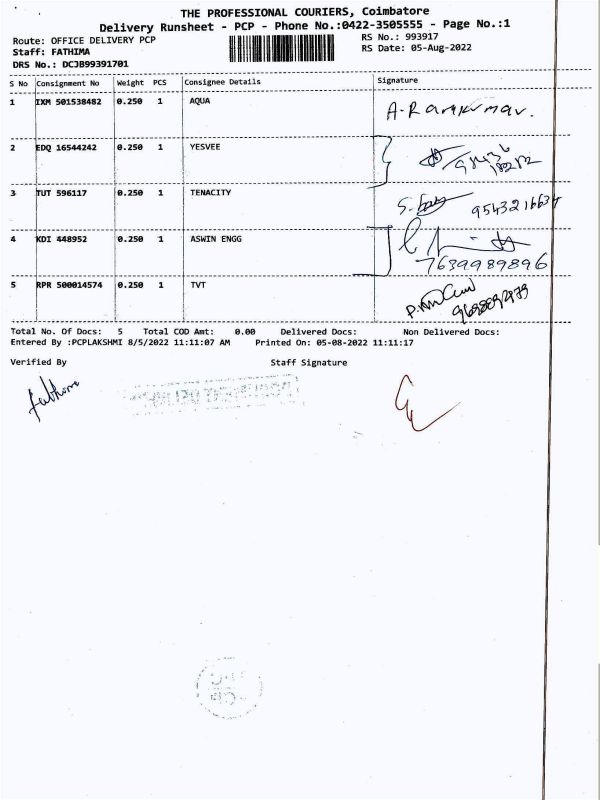 THE PROFESSIONAL COURIERS, Coimbatore
Delivery Runsheet - PCP - Phone No.:0422-3505555 - Page No.:1
Route: OFFICE DELIVERY PCP RS No.: 993917
Staff: FATHIMA RS Date: 05-Aug-2022
DRS No.: DCJB99391701
S No Consignment No Weight PCS Consignee Details Signature
1 IXM 501538482 0.250 1 AQUA A. Ramkumar.
2 EDQ 16544242 0.250 1 YESVEE
3 TUT 596117 0.250 1 TENACITY 9543216634
4 KDI 448952 0.250 1 ASWIN ENGG
7639989896
5 RPR 500014574 0.250 1 TVT
Total No. Of Docs: 5 Total COD Amt: 0.00 Delivered Docs: Non Delivered Docs:
Entered By :PCPLAKSHMI 8/5/2022 11:11:07 AM Printed On: 05-08-2022 11:11:17
Verified By Staff Signature